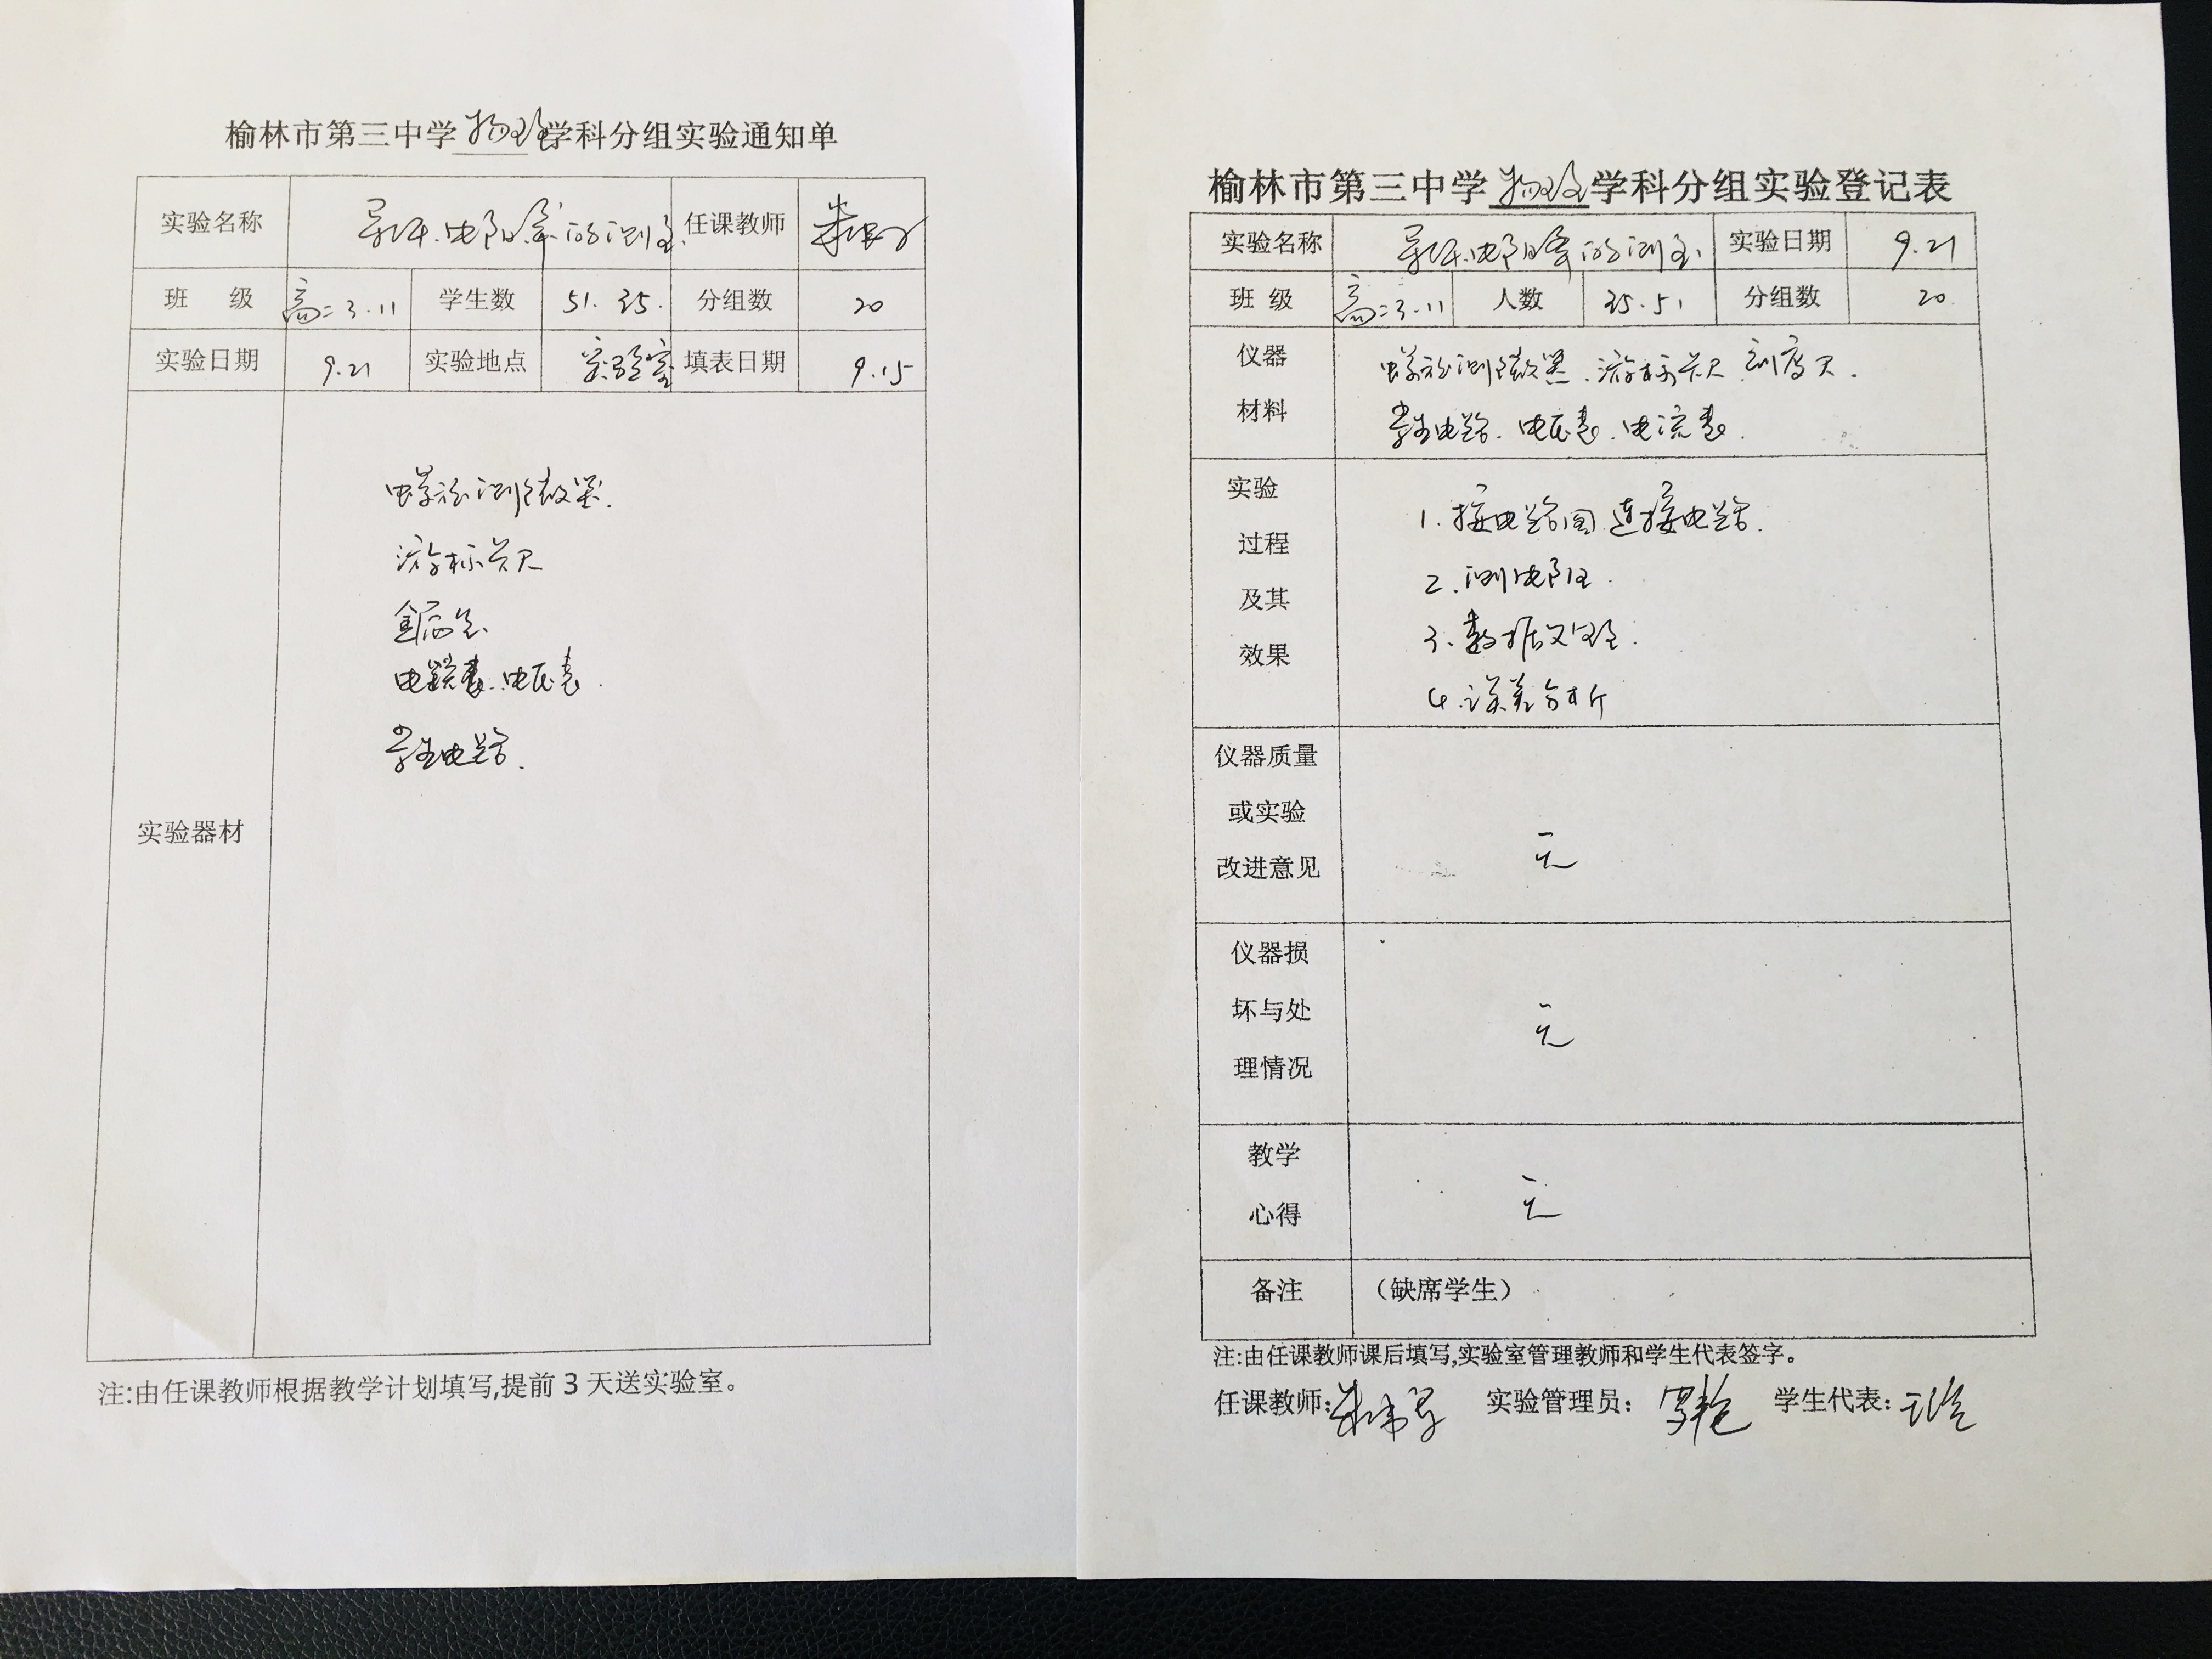 榆林市第三中学物理学科分组实验通知单
实验名称 导体电阻率的测量 任课教师
班 级 高二3.11 学生数 51.35. 分组数 20
实验日期 9.21 实验地点 实验室 填表日期 9.15
实验器材
螺旋测微器.
游标卡尺
金属丝.
电流表.电压表.
学生电路.
注:由任课教师根据教学计划填写,提前3天送实验室。
榆林市第三中学物理学科分组实验登记表
实验名称 导体电阻率的测量 实验日期 9.21
班 级 高二3.11 人数 35.51 分组数 20
仪器 螺旋测微器.游标卡尺.刻度尺.
材料 学生电路.电压表.电流表.
实验
过程
及其
效果
1.接电路图.连接电路.
2.测电阻.
3.数据处理.
4.误差分析
仪器质量
或实验
改进意见
无
仪器损
坏与处
理情况
无
教学
心得
无
备注 (缺席学生)
注:由任课教师课后填写,实验室管理教师和学生代表签字。
任课教师: 实验管理员: 学生代表: